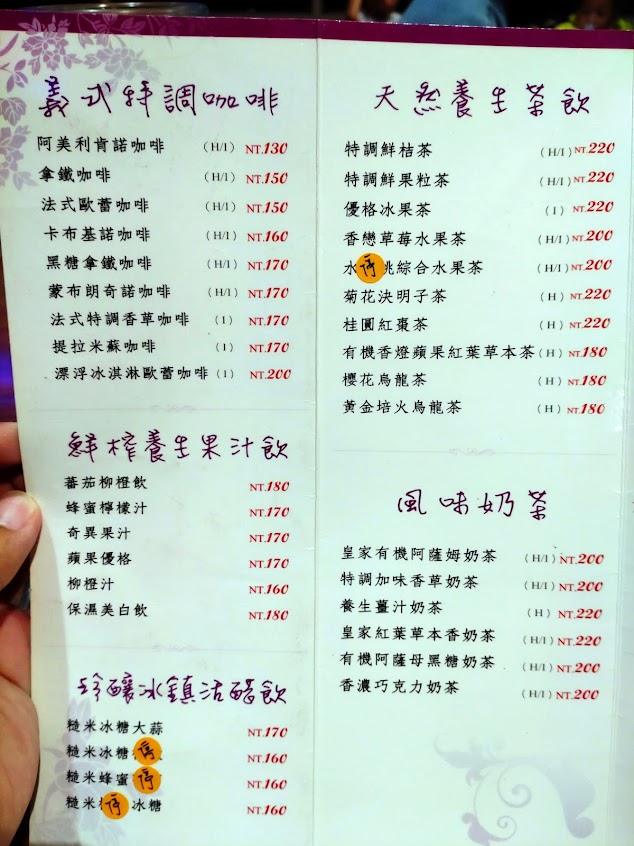 義式特調咖啡
阿美利肯諾咖啡 (H/I) NT.130
拿鐵咖啡 (H/I) NT.150
法式歐蕾咖啡 (H/I) NT.150
卡布基諾咖啡 (H/I) NT.160
黑糖拿鐵咖啡 (H/I) NT.170
蒙布朗奇諾咖啡 (H/I) NT.170
法式特調香草咖啡 (I) NT.170
提拉米蘇咖啡 (I) NT.170
漂浮冰淇淋歐蕾咖啡 (I) NT.200
鮮榨養生果汁飲
蕃茄柳橙飲 NT.180
蜂蜜檸檬汁 NT.170
奇異果汁 NT.170
蘋果優格 NT.170
柳橙汁 NT.160
保濕美白飲 NT.180
珍釀冰鎮活醋飲
糙米冰糖大蒜 NT.170
糙米冰糖 停 NT.160
糙米蜂蜜 停 NT.160
糙米 停 冰糖 NT.160
天然養生茶飲
特調鮮桔茶 (H/I) NT.220
特調鮮果粒茶 (H/I) NT.220
優格冰果茶 (I) NT.220
香戀草莓水果茶 (H/I) NT.200
水 停 桃綜合水果茶 (H/I) NT.200
菊花決明子茶 (H) NT.220
桂圓紅棗茶 (H) NT.220
有機香燈蘋果紅葉草本茶 (H/I) NT.180
櫻花烏龍茶 (H) NT.180
黃金培火烏龍茶 (H) NT.180
風味奶茶
皇家有機阿薩姆奶茶 (H/I) NT.200
特調加味香草奶茶 (H/I) NT.200
養生薑汁奶茶 (H) NT.220
皇家紅葉草本香奶茶 (H/I) NT.220
有機阿薩母黑糖奶茶 (H/I) NT.200
香濃巧克力奶茶 (H/I) NT.200